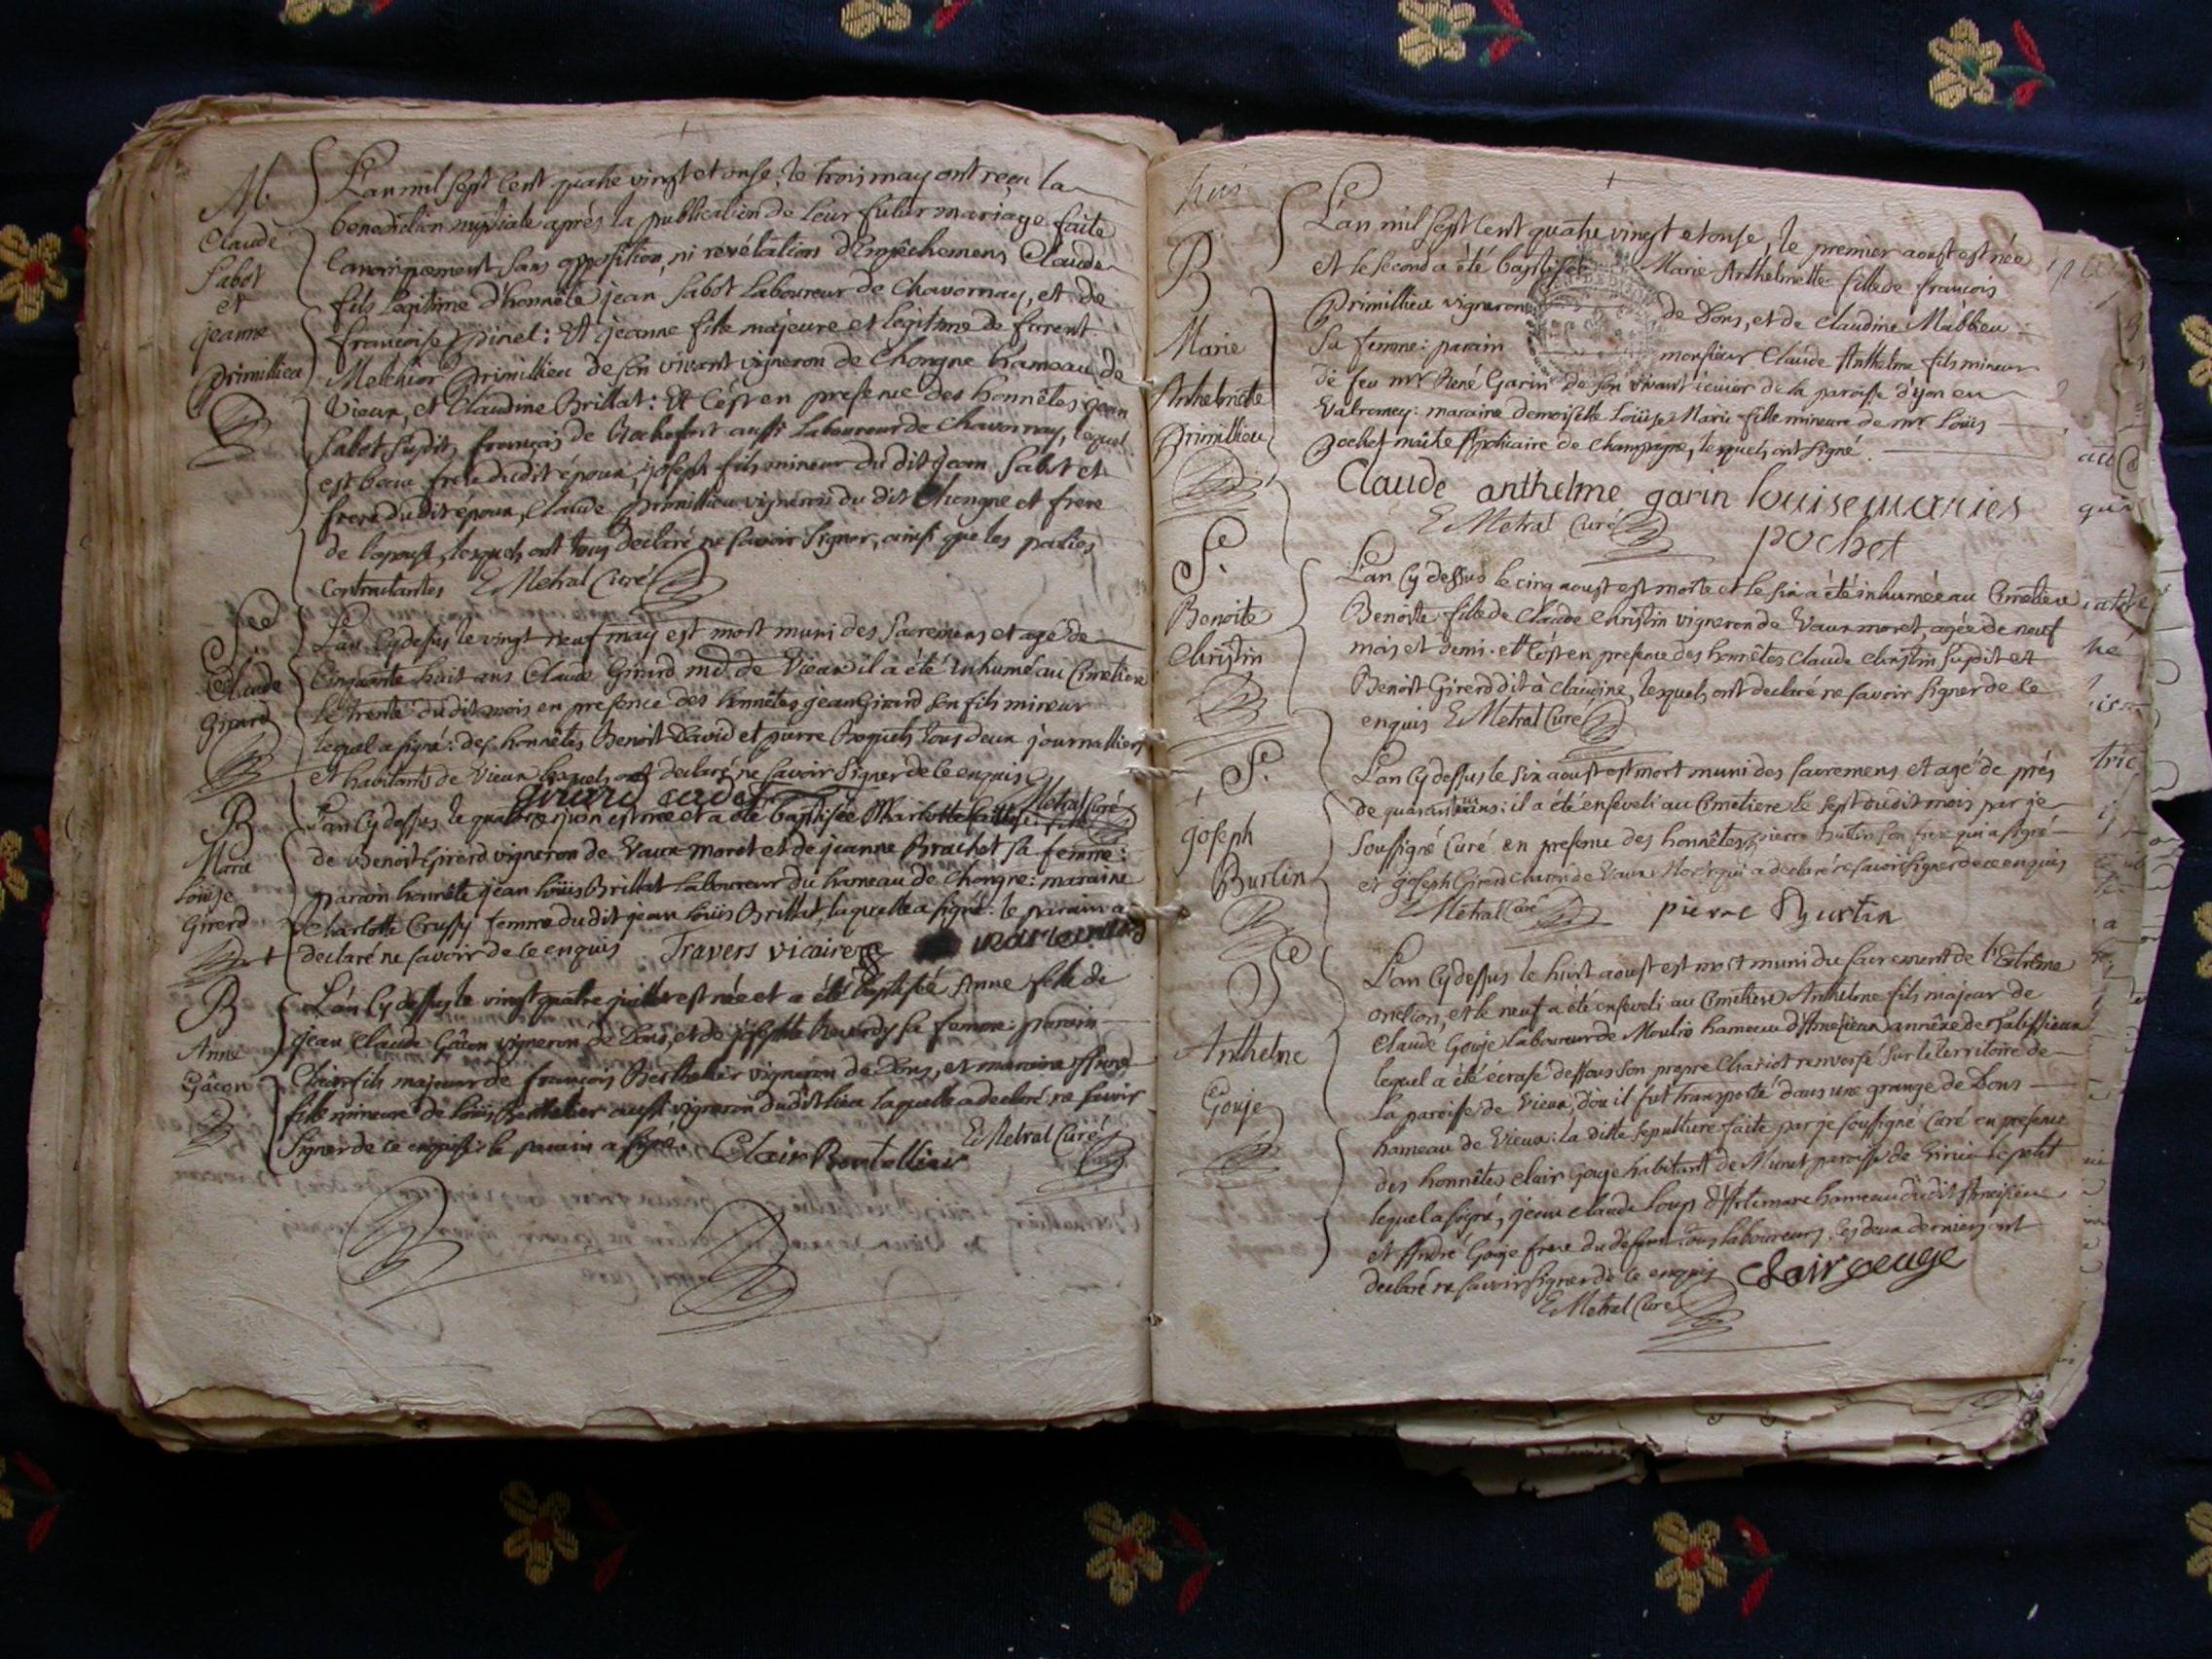 M.
Claude
Sabot
et
jeanne
Primillieu
L'an mil sept cent quatre vingt et onse, le trois may ont reçu la
benediction nuptiale après la publication de leur futur mariage faite
canoniquement sans opposition, ni revélation d'Empêchemens Claude
fils légitime d'honnête jean Sabot Laboureur de Chavornay, et de
françoise pinel : Et jeanne fille majeure et légitime de
Melchior Primillieu de son vivant vigneron de Chongne hameau de
Vieux, et Claudine Brillat : Et C'est en presence des honnêtes jean
Sabot susdit, françois de Rochefort aussi Laboureur de Chavornay, lequel
est beau frere du dit époux, joseph fils mineur du dit jean Sabot et
frere du dit époux, Claude Primillieu vigneron du dit Chongne et frere
de l'epouse, lesquels ont tous declaré ne savoir signer, ainsi que les parties
Contractantes E Metral Curé
Sre.
Claude
Girard
L'an Cy dessus le vingt neuf may est mort muni des Sacremens et agé de
Cinquante huit ans Claude Girard md. de Vieux il a été inhumé au Cimetiere
le trente du dit mois en presence des honnêtes jean Girard son fils mineur
lequel a signé : des honnêtes Benoit David et pierre Boquet tous deux journalliers
et habitants de Vieux lesquels ont declaré ne savoir signer de ce enquis
girard cadet E Metral Curé
B
Marie
Louise
Girerd
L'an Cy dessus le quatorze juin est née et a été baptisée Charlotte Louise fille
de Benoit Girerd vigneron de Vaux moret et de jeanne Brachet sa femme :
parain honnête jean Loüis Brillat Laboureur du hameau de Chongne : maraine
Charlotte Crussy femme du dit jean Loüis Brillat, laquelle a signé : le parain a
declaré ne savoir de ce enquis Travers vicaire
B
Anne
Gâcon
L'an Cy dessus le vingt quatre juillet est née et a été baptisée Anne fille de
jean Claude Gâcon vigneron de Dons, et de josephte sa femme : parain
Clair fils majeur de françois Berthelier vigneron de Dons, et maraine Anne
fille mineure de Loüis Berthelier aussi vigneron du dit lieu laquelle a declaré ne savoir
signer de ce enquise : le parain a signé. Clair Bertellier E Metral Curé
B
Marie
Anthelmette
Primillieu
L'an mil sept cent quatre vingt et onse, le premier aoust est née
et le second a été baptisée Marie Anthelmette fille de françois
Primillieu vigneron de Dons, et de Claudine Mabbeu
sa femme : parain monsieur Claude Anthelme fils mineur
de feu mr. René Garin de son vivant écuier de la paroisse d'yon en
Valromey : maraine demoiselle Loüise Marie fille mineure de mr Loüis
Pochet maître Apoticaire de Champagne, lesquels ont signé.
Claude anthelme garin louise maries
E Metral Curé pochet
Sre.
Benoite
Christin
L'an Cy dessus le cinq aoust est morte et le six a été inhumée au Cimetiere
Benoîte fille de Claude Christin vigneron de Vaux moret, agée de neuf
mois et demi. et C'est en presence des honnêtes Claude Christin susdit et
Benoit Girerd dit à Claudine, lesquels ont declaré ne savoir signer de ce
enquis E Metral Curé
Sre.
joseph
Burtin
L'an Cy dessus le six aoust est mort muni des sacremens et agé de près
de quarante ans : il a été enseveli au Cimetiere le sept du dit mois par je
soussigné Curé en presence des honnêtes pierre Burtin son frere qui a signé
et joseph Girerd de Vaux Moret qui a declaré ne savoir signer de ce enquis
E Metral Curé pierre Burtin
Sre
Anthelme
Gouje
L'an Cy dessus le huit aoust est mort muni du sacrement de l'Extrême
onction, et le neuf a été enseveli au Cimetiere Anthelme fils majeur de
Claude Gouje laboureur de Moulin hameau d'Ameysieux annêxe de Talissieux
lequel a été écrasé dessous son propre Chariot renversé sur le territoire de
la paroisse de Vieux, d'où il fut transporté dans une grange de Dons
hameau de Vieux : la ditte sepulture faite par je soussigné Curé en presence
des honnêtes Clair Gouje habitant de Munet paroisse de Virieu le petit
lequel a signé, jean Claude Loup d'Artemare hameau du dit Ameysieu
et André Gouje frere du defunt tous laboureurs, les deux derniers ont
declaré ne savoir signer de ce enquis Clair gouge
E Metral Curé